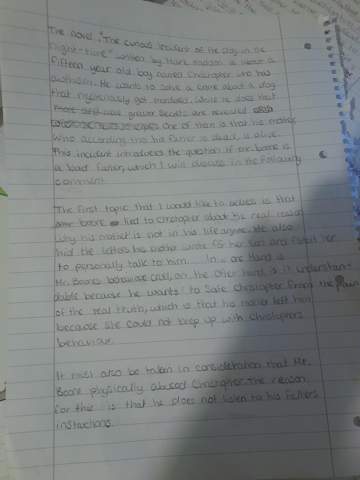 The novel "The curious incident of the dog in the
night-time" written by Mark Haddon is about a
fifteen year old boy named Christopher who has
He wants to solve a crime about a dog
that mysteriously got murdered. While he does that
more and more greater secrets are revealed
One of them is that his mother
who according to his father is dead, is alive.
This incident introduces the question if mr. Boone is
a bad father, which I will discuss in the following
comment.
The first topic that I would like to adress is that
Boone lied to Christopher about his real reason
why his mother is not in his life anyme. He also
hid the letters his mother wrote to his son and
to personally talk to him. ... In one Hand is
Mr. Boones behaviour cruel, on the other hand is it understan-
dable because he wants to safe Christopher from the pain
of the real truth, which is that his mother left him
because she could not keep up with Christophers
behaviour.
It must also be taken in consideration that Mr.
Boone physically abused Christopher. the reason
for this is that he does not listen to his fathers
instructions.